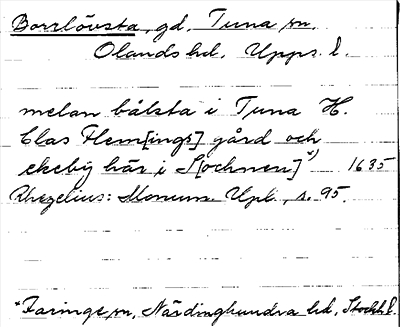 Borrlövsta, gd, Tuna sn,
Olands hd, Upps. l.
melan bålsta i Tuna H.
Clas Flem[ings] gård och
ekeby här i S[ochnen]*) 1635
Rhezelius: Monum. Upl., s. 95.
*Faringe sn, Närdinghundra hd, Stockh. l.